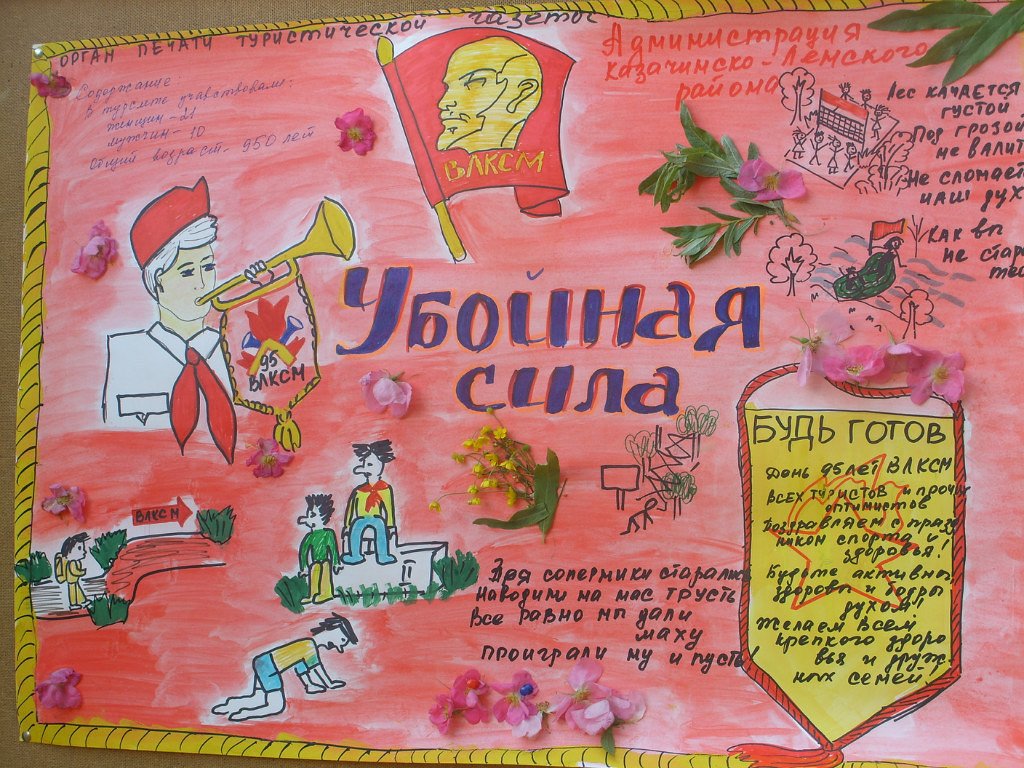 ОРГАН ПЕЧАТИ ТУРИСТИЧЕСКОЙ ГАЗЕТЫ
Содержание:
в турслете учавствовали:
женщин-21
мужчин-10
Общий возраст- 950 лет
ВЛКСМ
Администрация
Казачинско-Ленского
района
Лес качается
густой
Под грозой
не валит
Не сломает
наш дух
как вы
не стар
95
ВЛКСМ
Убойная
сила
ВЛКСМ
II
Зря соперники старались
Наводили на нас грусть
Все равно мы дали
маху
проиграли ну и пусть!
БУДЬ ГОТОВ
День 95 лет ВЛКСМ
всех туристов и прочих
оптимистов
Поздравляем с празд
ником спорта и
здоровья!
Будьте активны
здоровы и бодры
духом!
Желаем всем
крепкого здоро
вья и друж-
ных семей!